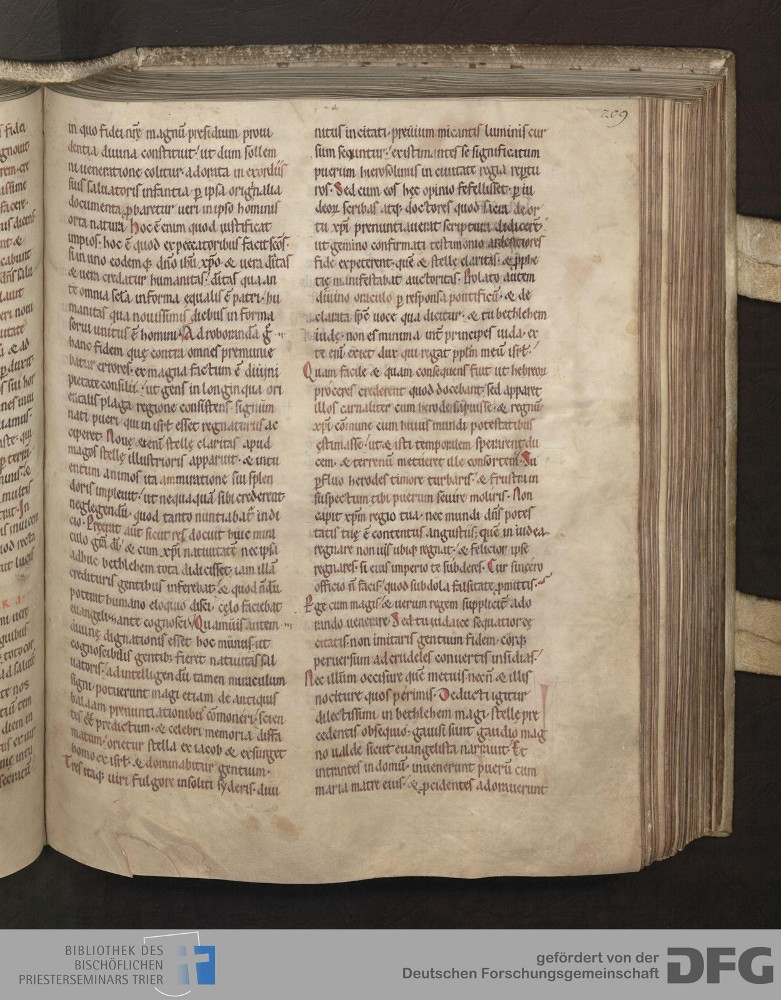 209
in quo fidei nrę magnū presidium proui
dentia diuina constituit. ut dum sollem
ni ueneratione colitur. adorata in exordiis
sui saluatoris infantia. ꝑ ipsa originalia
documenta ꝓbaretur ueri in ipso hominis
orta natura. Hoc ē enim quod iustificat
impios. hoc ē quod ex peccatoribus facit scos.
si in uno eodemq; dno ihu xpo. & uera diuitas
& uera credatur humanitas. diuitas qua an
te omnia scla in forma equalis ē patri. hu
manitas qua nouissimis diebus in forma
serui unitus ē homini. Ad roboranda g
hanc fidem quę contra omnes premunie
batur errores. ex magna factum ē diuini
pietate consilii. ut gens in longinqua ori
entalis plaga regione consistens. signum
nati pueri. qui in isrl esset regnaturus ac
ciperet. Nouę etenī stellę claritas apud
magos stellę illustrioris apparuit. & intu
entium animos ita ammiratione sui splen
doris impleuit. ut nequaquā sibi crederent
neglegendū. quod tanto nuntiabat indi
cio. Preerat aut sicut res docuit huic mira
culo gra di. & cum xpi natiuitatē nec ipsa
adhuc bethlehem tota didicisset. iam illā
credituris gentibus inferebat. & quod ndū
poterat humano eloquio disci. cęlo faciebat
euangelizante cognosci. Quamuis autem
diuinę dignationis esset hoc munus. ut
cognoscibilis gentib; fieret natiuitas sal
uatoris. ad intelligendū tamen miraculum
signi. potuerunt magi etiam de antiquis
balaam prenuntiationibus cōmoneri. scien
tes ee predictum. & celebri memoria diffa
matum. orietur stella ex iacob & exsurget
homo ex isrl. & dominabitur gentium.
Tres itaq; uiri fulgore insoliti syderis. diui
nitus incitati. preuium micantis luminis cur
sum sequntur. existimantes se significatum
puerum hierosolimis in ciuitate regia reptu
ros. Sed cum eos hęc opinio fefellisset. ꝑ iu
deorʒ scribas atq; doctores quod sacra de or
tu xpi prenuntiauerat scriptura didicert.
ut gemino confirmati testimonio ardentiores
fide expeterent. quē & stelle claritas. & ꝓphe
tie manifestabat auctoritas. Prolato autem
diuino oraculo ꝑ responsa pontificū. & de
clarata spē uoce qua dicitur. & tu bethlehem
iudę. non es minima int principes iuda. ex
te eni exiet dux qui regat pplm meū isrl.
Quam facile & quam consequens fuit ut hebreoų
proceres crederent quod docebant. sed apparet
illos carnaliter cum herode sapuisse. & regnū
xpi comune cum huius mundi potestatibus
estimasse. ut & isti temporalem sperarent du
cem. & terrenū metueret ille consortem. Su
ꝑfluo herodes timore turbaris. & frustra in
suspectum tibi puerum seuire moliris. Non
capit xpm regio tua. nec mundi dns potes
tatis tuę ē contentus angustiis. quē in iudea
regnare non uis ubiq; regnat. & felicior ipse
regnares. si eius imperio te subderes. Cur sincero
officio n facis. quod subdola falsitate ꝓmittis.
Perge cum magis. & uerum regem supplicit ado
rando uenerare. Sed tu iudaice sequatior ce
citatis. non imitaris gentium fidem. corq;
peruersum ad crudeles conuertis insidias.
Nec illum occisurus quē metuis. necn & illis
nociturus quos perimis. Deducti igitur
dilectissimi in bethlehem magi. stellę pre
cedentis obsequio. gauisi sunt gaudio mag
no ualde sicut euangelista narrauit. Et
intrantes in domū. inuenerunt puerū cum
maria matre eius. & ꝓcidentes adorauerunt
BIBLIOTHEK DES
BISCHÖFLICHEN
PRIESTERSEMINARS TRIER
gefördert von der
Deutschen Forschungsgemeinschaft
DFG